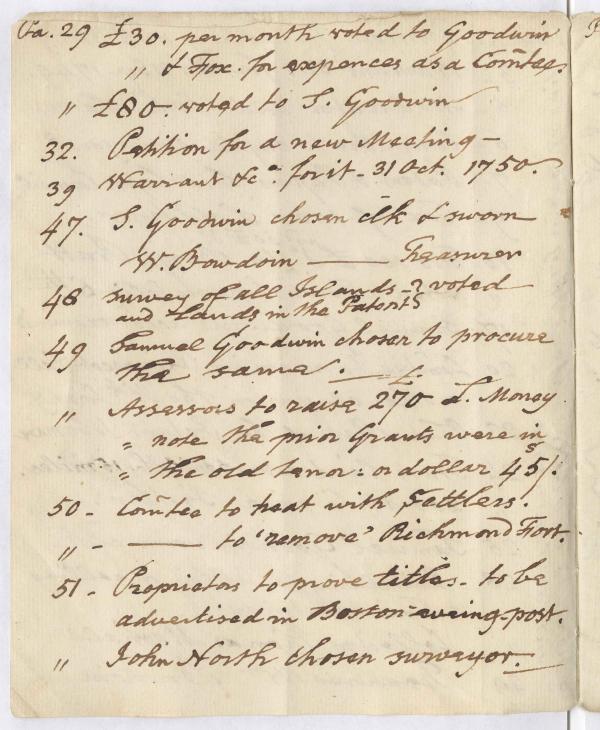 Pa. 29 £30. per month voted to Goodwin
" & Fox. for expences as a Com̃tee.
" £80. voted to S. Goodwin
32. Petition for a new Meeting -
39 Warrant &c.ª for it - 31 Oct. 1750.
47. S. Goodwin chosen clk & sworn
W. Bowdoin —— Treasurer
48 survey of all Islands } voted
and Lands in the Patent
49 Samuel Goodwin chosen to procure
the same. —
" Assessors to raise 270 L. Money
" note the prior Grants were in
" the old tenor: or dollar 45s/.
50 - Com̃tee to treat with Settlers.
" - —— to 'remove' Richmond Fort.
51 - Proprietors to prove titles - to be
advertised in Boston evening-post.
" John North chosen surveyor.